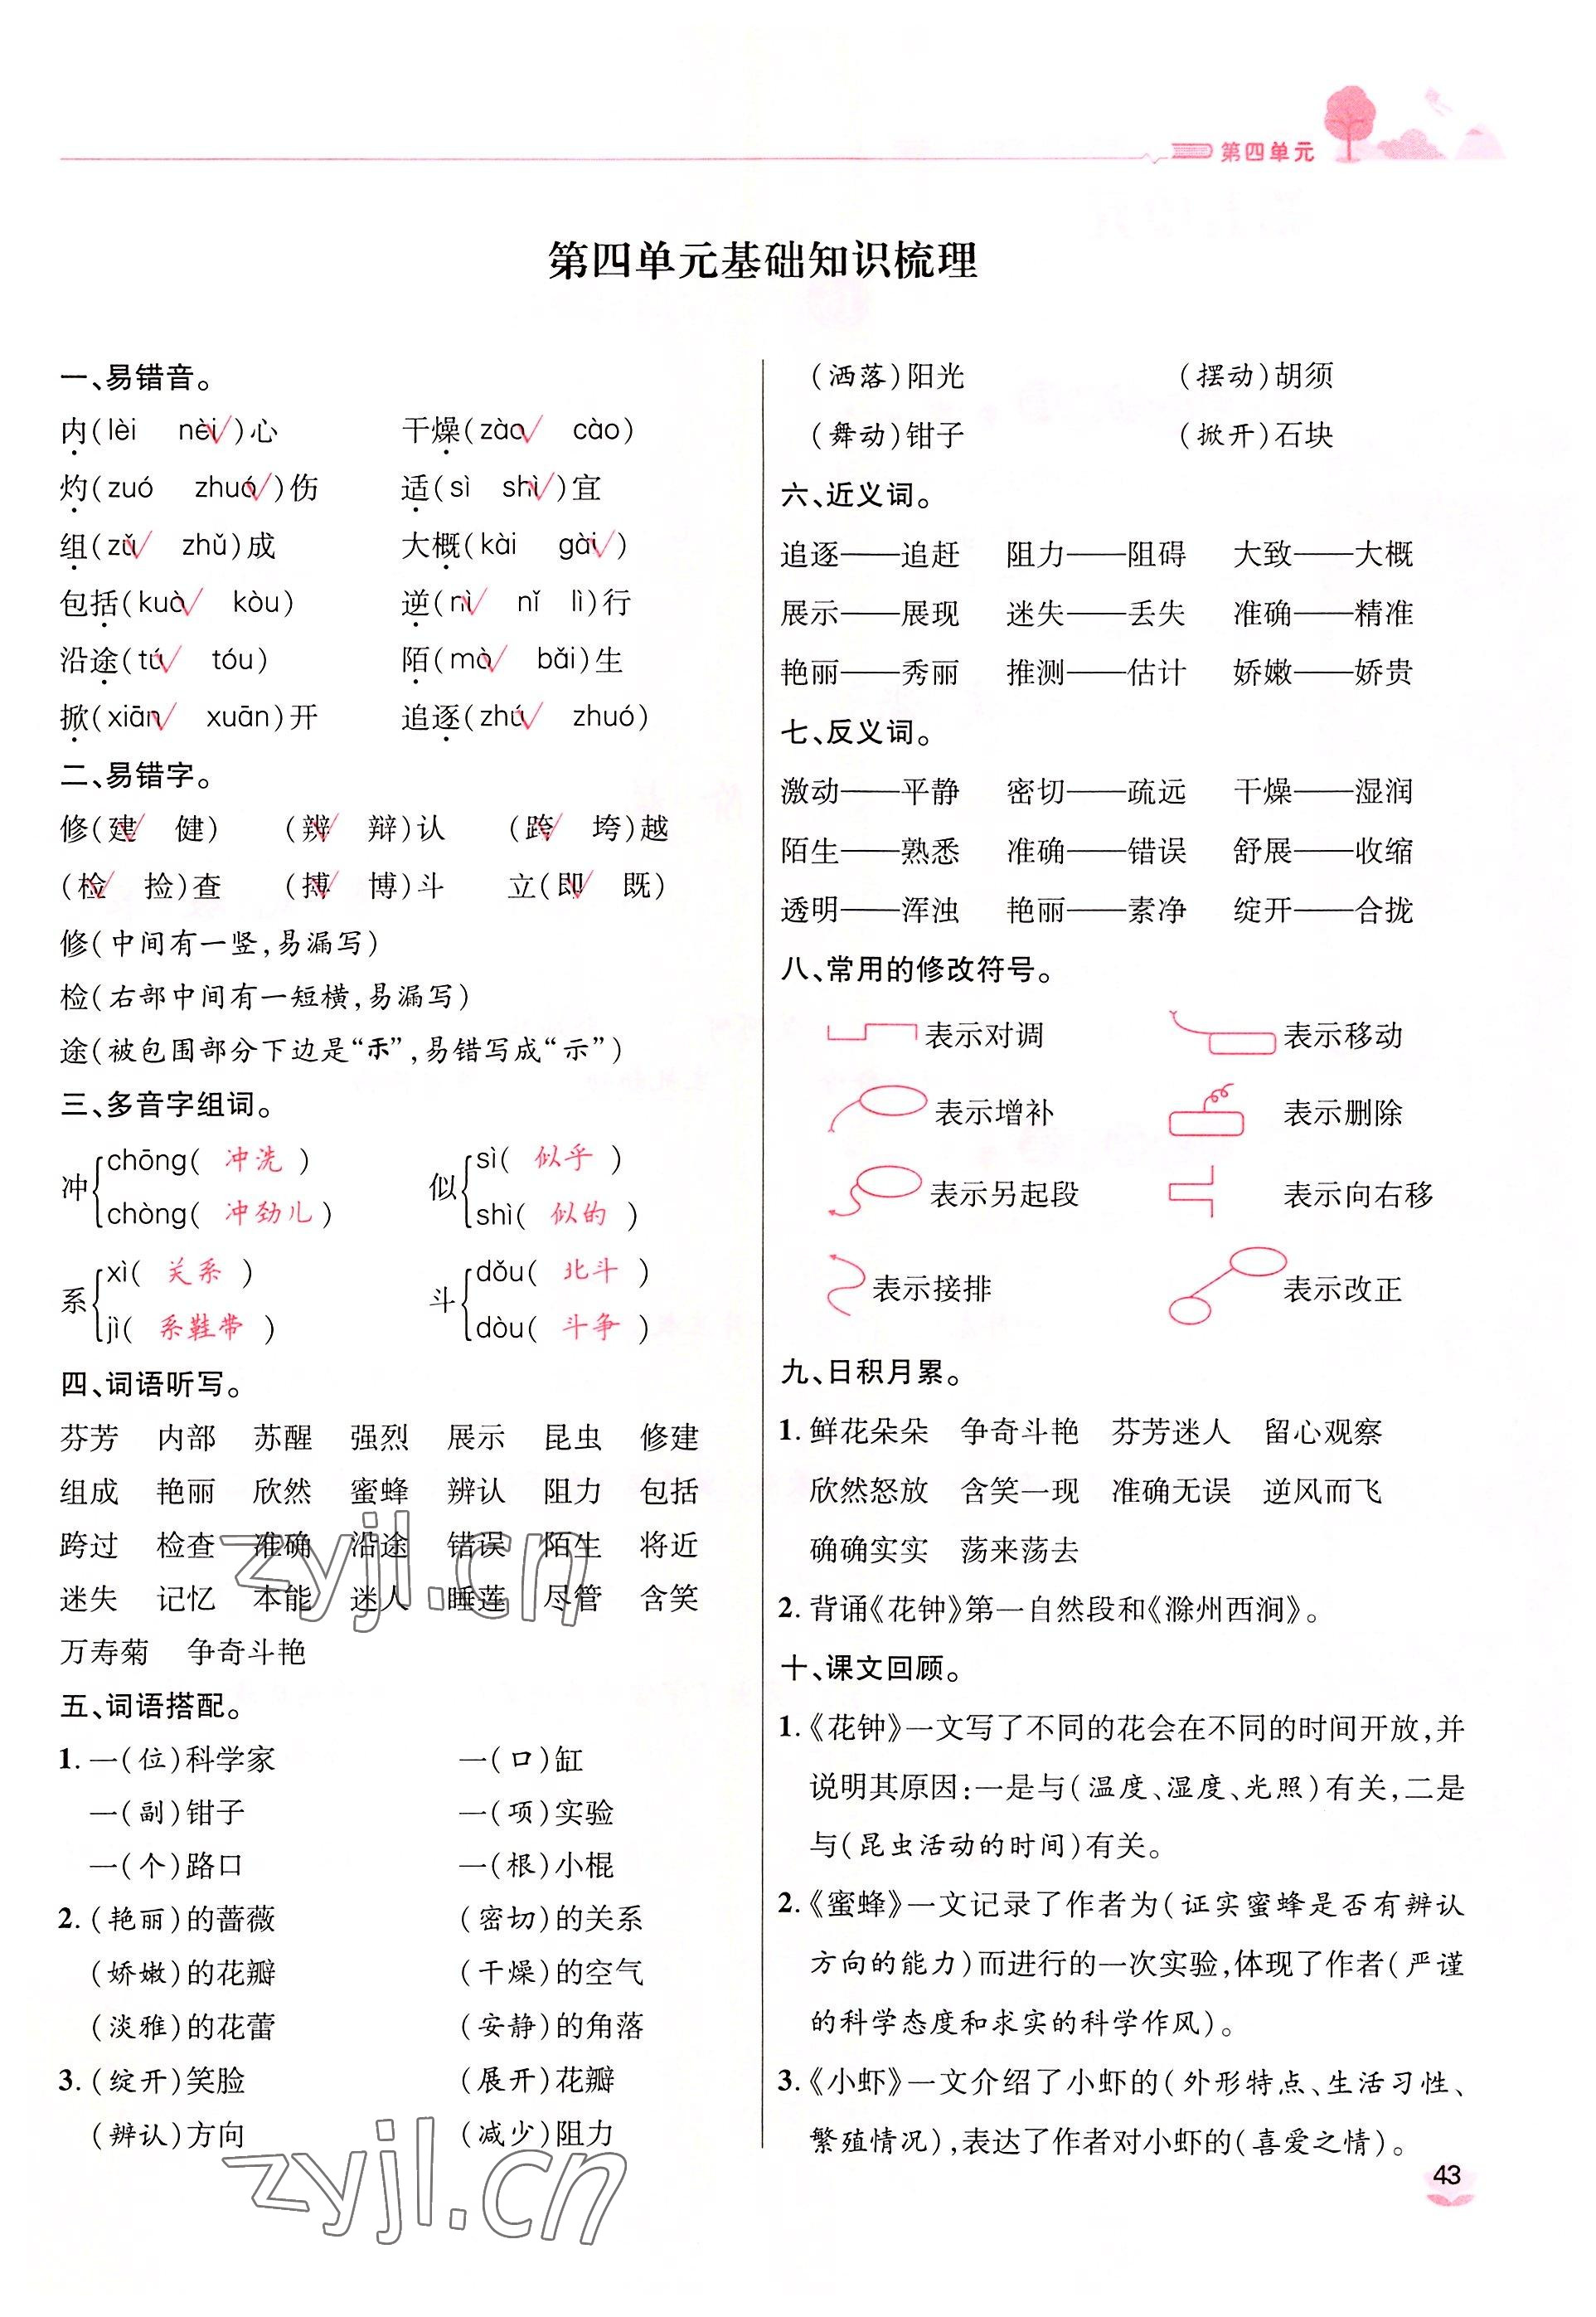 第四单元
第四单元基础知识梳理
一、易错音。
内(lèi nèi√)心 干燥(zào√ cào)
灼(zuó zhuó√)伤 适(sì shì√)宜
组(zǔ√ zhǔ)成 大概(kài gài√)
包括(kuò√ kòu) 逆(nì√ nǐ lì)行
沿途(tú√ tóu) 陌(mò√ bǎi)生
掀(xiān√ xuān)开 追逐(zhú√ zhuó)
二、易错字。
修(建√ 健) (辨√ 辩)认 (跨√ 垮)越
(检√ 捡)查 (搏√ 博)斗 立(即√ 既)
修(中间有一竖,易漏写)
检(右部中间有一短横,易漏写)
途(被包围部分下边是“𣎳”,易错写成“示”)
三、多音字组词。
冲 chōng( 冲洗 ) chòng( 冲劲儿 )
似 sì( 似乎 ) shì( 似的 )
系 xì( 关系 ) jì( 系鞋带 )
斗 dǒu( 北斗 ) dòu( 斗争 )
四、词语听写。
芬芳 内部 苏醒 强烈 展示 昆虫 修建
组成 艳丽 欣然 蜜蜂 辨认 阻力 包括
跨过 检查 准确 沿途 错误 陌生 将近
迷失 记忆 本能 迷人 睡莲 尽管 含笑
万寿菊 争奇斗艳
五、词语搭配。
1. 一(位)科学家 一(口)缸
一(副)钳子 一(项)实验
一(个)路口 一(根)小棍
2. (艳丽)的蔷薇 (密切)的关系
(娇嫩)的花瓣 (干燥)的空气
(淡雅)的花蕾 (安静)的角落
3. (绽开)笑脸 (展开)花瓣
(辨认)方向 (减少)阻力
(洒落)阳光 (摆动)胡须
(舞动)钳子 (掀开)石块
六、近义词。
追逐——追赶 阻力——阻碍 大致——大概
展示——展现 迷失——丢失 准确——精准
艳丽——秀丽 推测——估计 娇嫩——娇贵
七、反义词。
激动——平静 密切——疏远 干燥——湿润
陌生——熟悉 准确——错误 舒展——收缩
透明——浑浊 艳丽——素净 绽开——合拢
八、常用的修改符号。
表示对调 表示移动
表示增补 表示删除
表示另起段 表示向右移
表示接排 表示改正
九、日积月累。
1. 鲜花朵朵 争奇斗艳 芬芳迷人 留心观察
欣然怒放 含笑一现 准确无误 逆风而飞
确确实实 荡来荡去
2. 背诵《花钟》第一自然段和《滁州西涧》。
十、课文回顾。
1.《花钟》一文写了不同的花会在不同的时间开放,并
说明其原因:一是与(温度、湿度、光照)有关,二是
与(昆虫活动的时间)有关。
2.《蜜蜂》一文记录了作者为(证实蜜蜂是否有辨认
方向的能力)而进行的一次实验,体现了作者(严谨
的科学态度和求实的科学作风)。
3.《小虾》一文介绍了小虾的(外形特点、生活习性、
繁殖情况),表达了作者对小虾的(喜爱之情)。
43
zyjl.cn
zyjl.cn